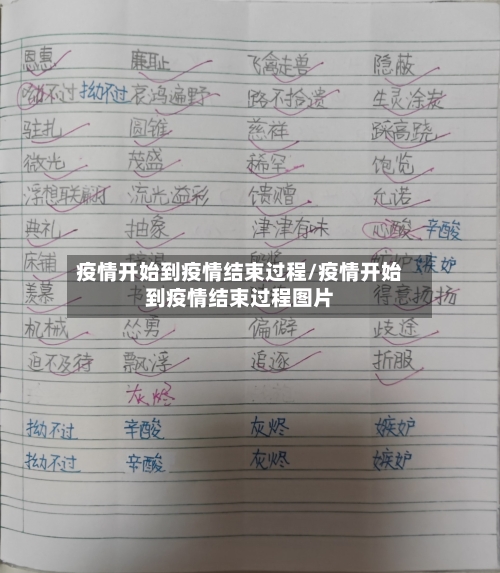 恩惠 廉耻 飞禽走兽 隐蔽
拗不过 拗不过 哀鸿遍野 路不拾遗 生灵涂炭
驻扎 圆锥 慈祥 踩高跷
微光 茂盛 稀罕 饱览
浮想联翩 流光溢彩 馈赠 允诺
典礼 抽象 津津有味 心酸 辛酸
床铺 嫉妒
疫情开始到疫情结束过程/疫情开始
到疫情结束过程图片
羡慕 得意扬扬
机械 怂勇 偏僻 歧途
迫不及待 飘浮 追逐 折服
灰烬
拗不过 辛酸 灰烬 嫉妒
拗不过 辛酸 灰烬 嫉妒